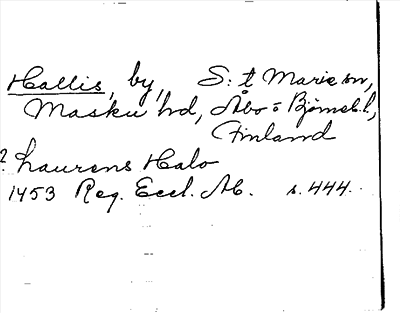 Hallis, by, S:t Marie sn,
Masku hd, Åbo = Björneb. l.,
Finland
? Laurens Halo
1453 Reg. Eccl. Ab. s. 444.